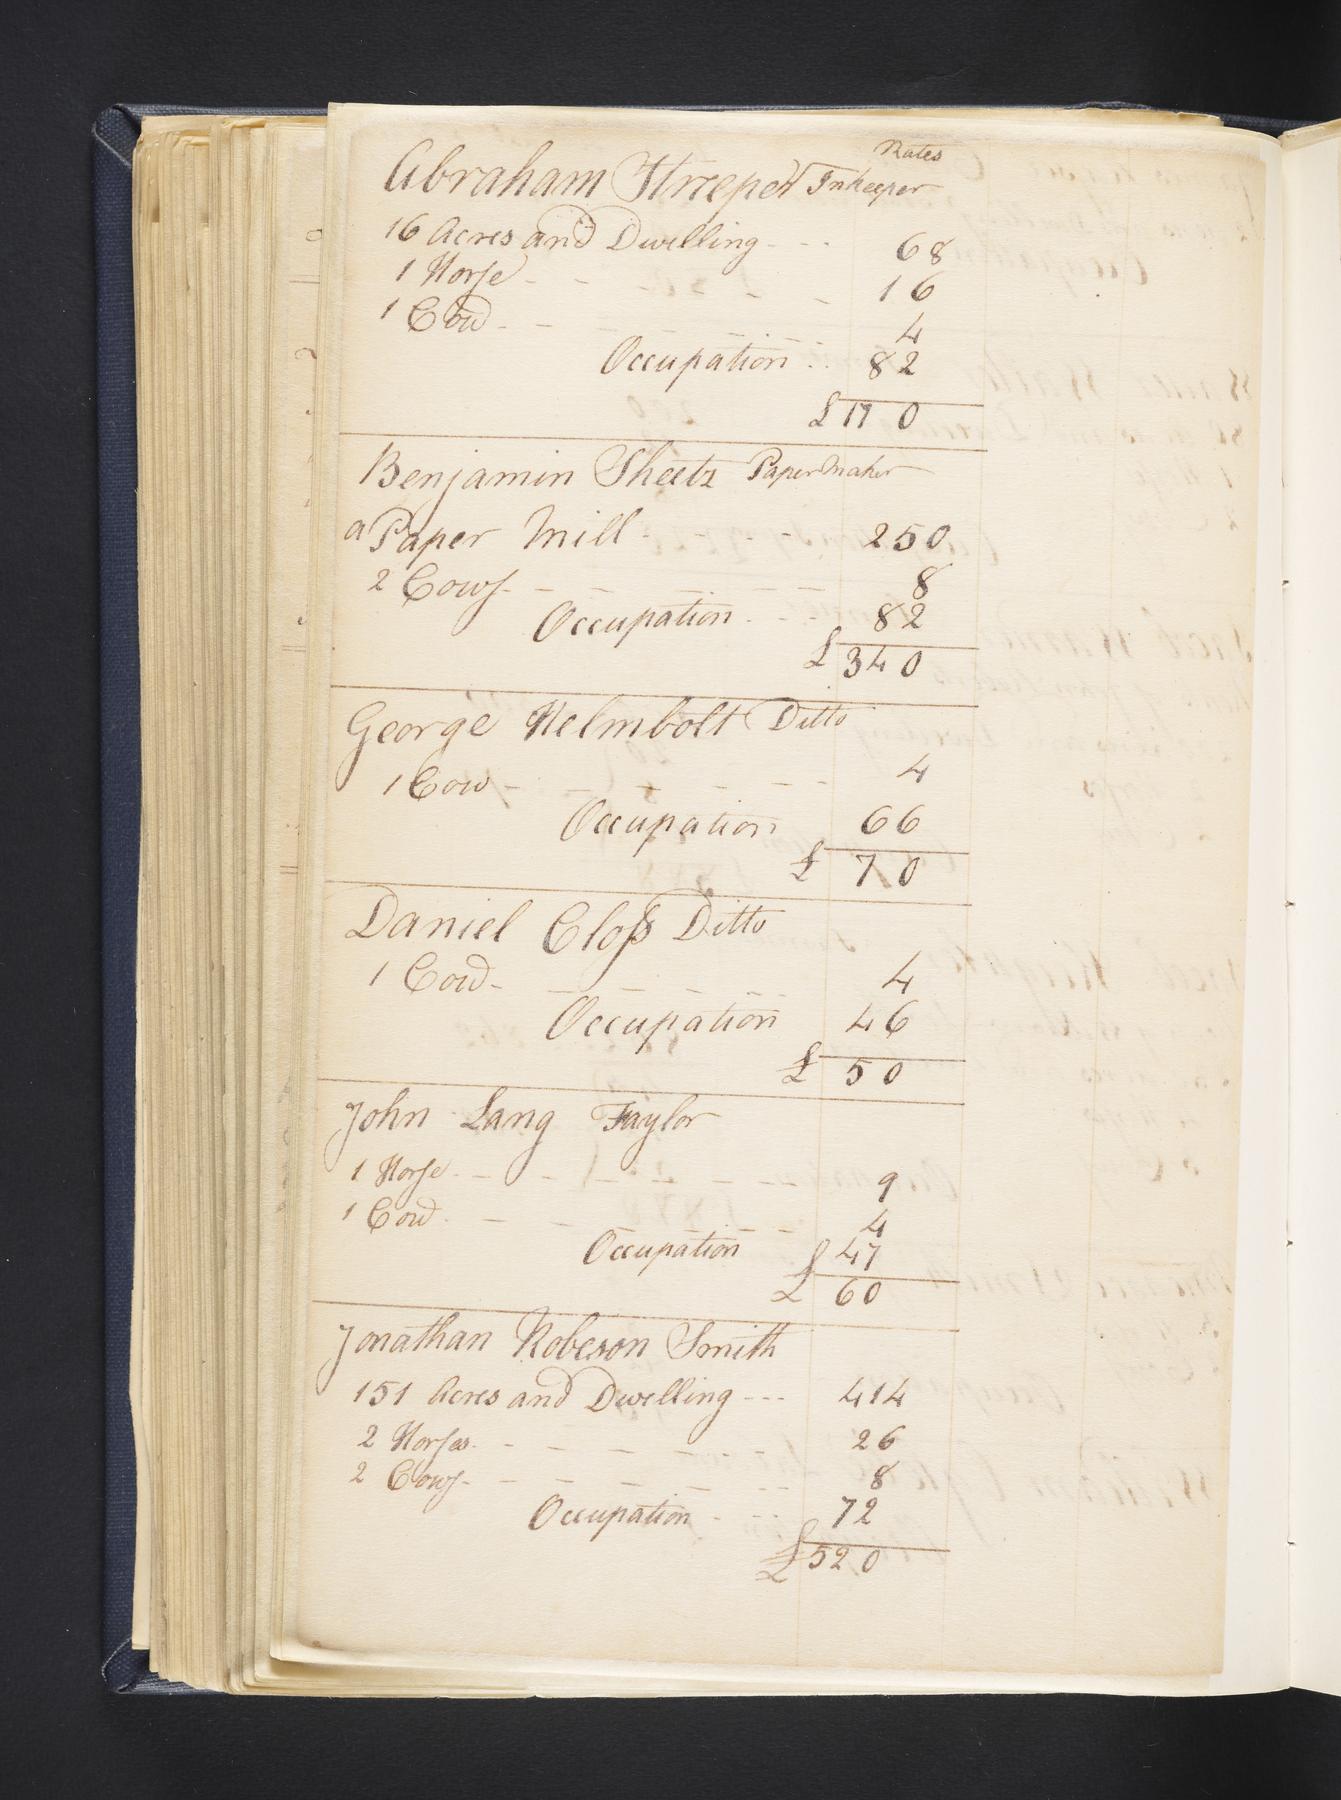 Rates
Abraham Streeper Inkeeper
16 Acres and Dwelling - - - 68
1 Horse - - - - - - 16
1 Cow - - - - - - 4
Occupation : . . 82
£ 170
Benjamin Sheetz Papermaker
a Paper Mill - - - - - 250
2 Cows - - - - - - - 8
Occupation - - - 82
£ 340
George Helmbolt Ditto
1 Cow - - - - - - 4
Occupation 66
£ 70
Daniel Closs Ditto
1 Cow - - - - - - 4
Occupation 46
£ 50
John Lang Taylor
1 Horse - - - - - - - 9
1 Cow - - - - - - 4
Occupation £ 47
£ 60
Jonathan Robeson Smith
151 Acres and Dwelling - - - 414
2 Horses - - - - - - - 26
2 Cows - - - - - - - 8
Occupation - - - 72
£ 520